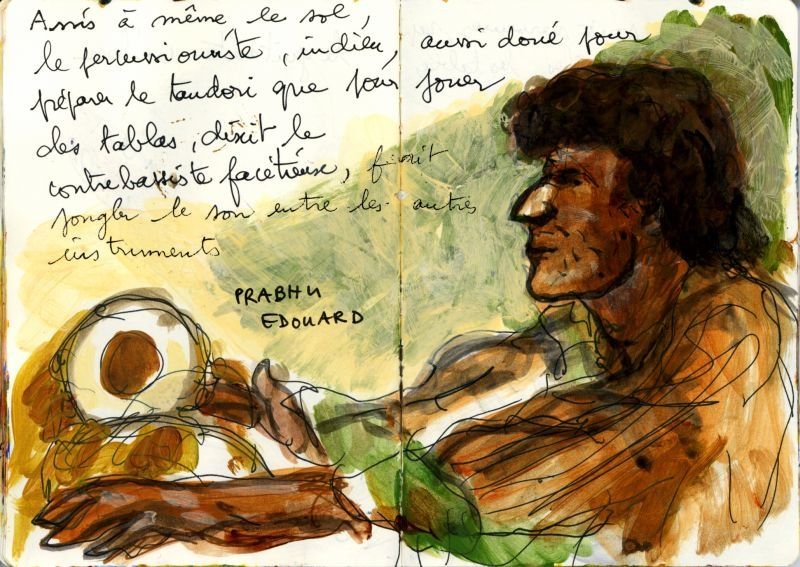 Assis à même le sol,
le percussionniste, indien, aussi doué pour
préparer le tandori que pour jouer
des tablas, dixit le
contrebassiste facétieux, fait
jongler le son entre les autres
instruments
PRABHU
EDOUARD